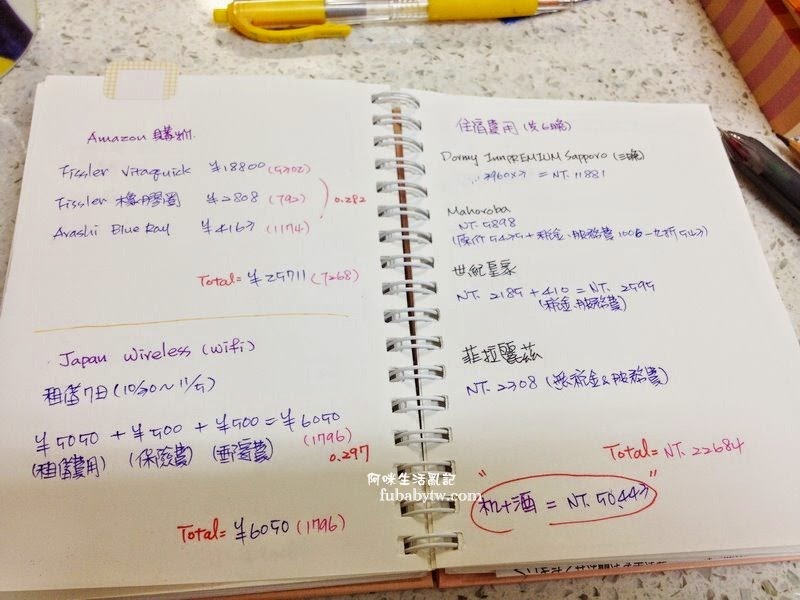 Amazon 購物
Fissler Vitaquick ¥18800 (5302)
Fissler 橡膠圈 ¥2808 (792)
0.282
Arashi Blue Ray ¥4163 (1174)
Total= ¥25711 (7268)
Japan Wireless (wifi)
租借7日 (10/30~11/5)
¥5050 + ¥500 + ¥500 = ¥6050
(1796)
(租借費用) (保險費) (郵寄費)
0.297
Total= ¥6050 (1796)
住宿費用 (共6晚)
Dormy Inn PREMIUM Sapporo (三晚)
3960x3 = NT. 11881
Mahoroba
NT. 5898
(原價5435+稅金.服務費1006-九折543)
世紀皇家
NT. 2185 + 410 = NT. 2595
(稅金.服務費)
菲拉麗茲
NT. 2308 (無稅金&服務費)
Total= NT. 22684
"機+酒 = NT. 50,443"
阿咪生活亂記
fubabytw.com